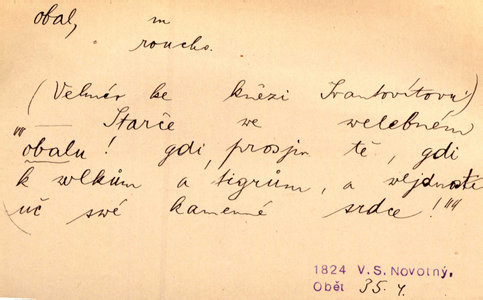 obal, m
roucho.
(Velmír ke knězi Svantovítovu:)
„„ — Starče we welebném
obalu! gdi, prosjm tě, gdi
k wlkům a tigrům, a wejdnosti
uč swé kamenné srdce!““
1824 V.S. Novotný,
Obět 35. 4.